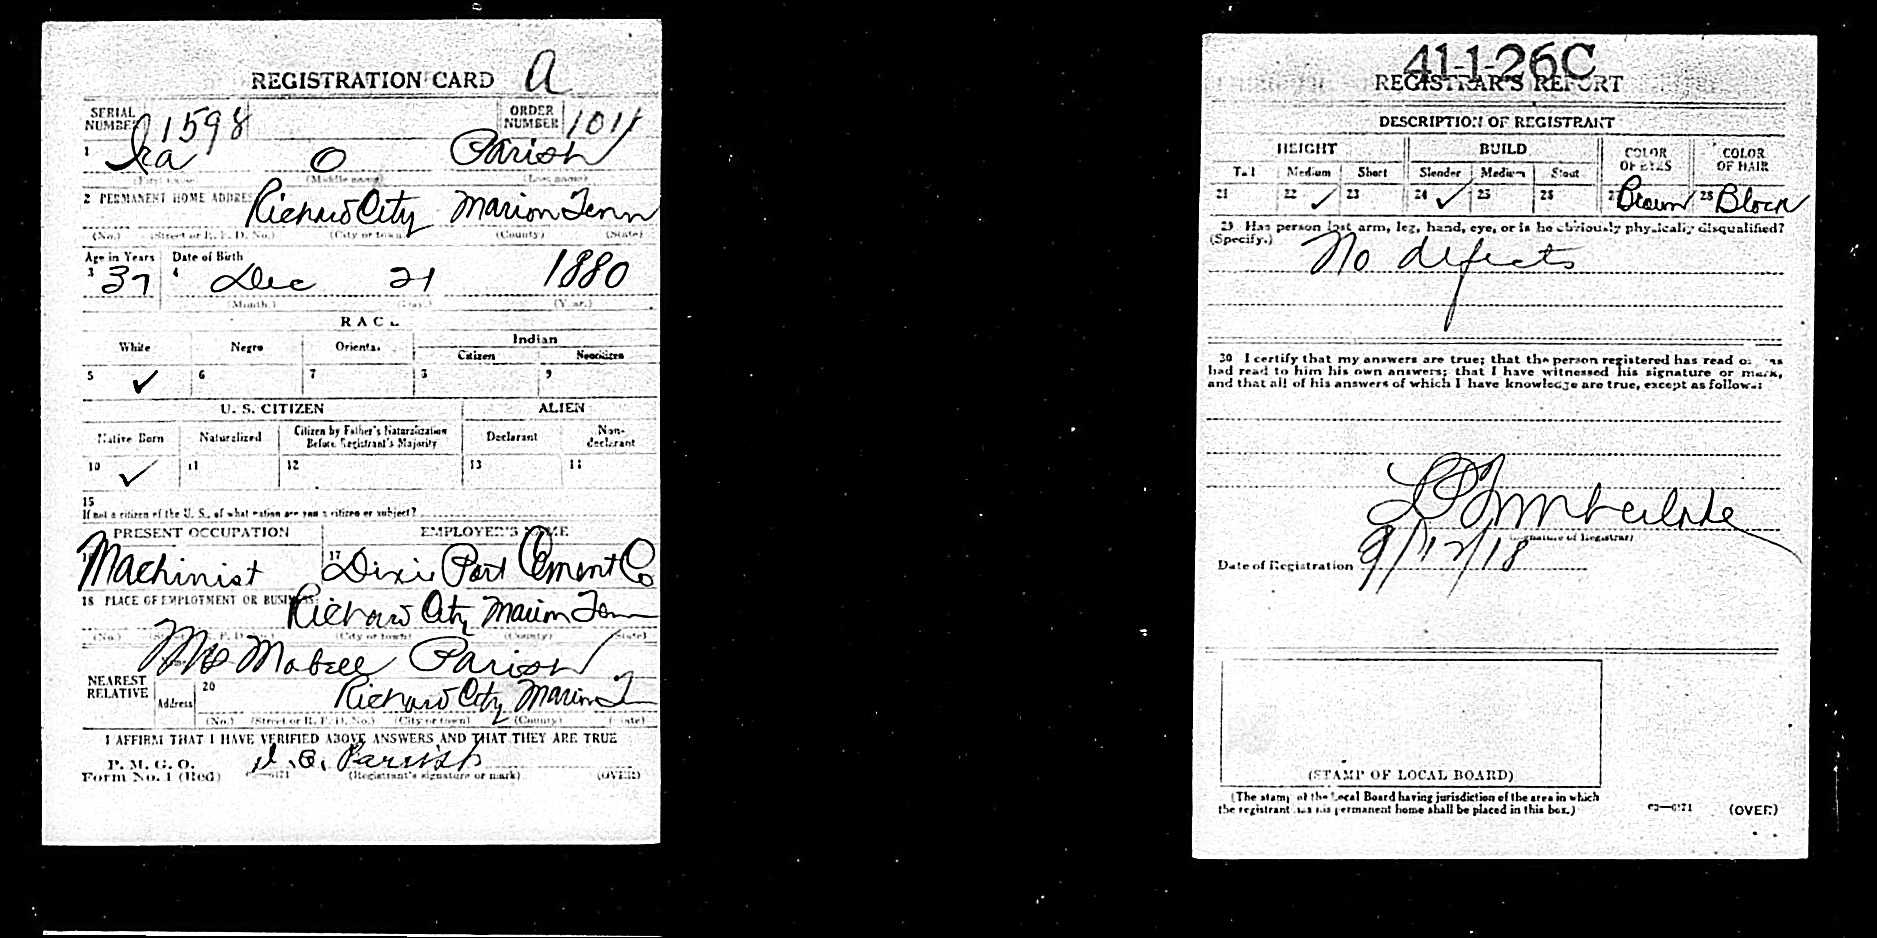 REGISTRATION CARD A
SERIAL NUMBER 1598 ORDER NUMBER 1011
1 Ira O Parish
(First name) (Middle name) (Last name)
2 PERMANENT HOME ADDRESS Richard City Marion Tenn
(No.) (Street or R. F. D. No.) (City or town) (County) (State)
Age in Years Date of Birth
3 37 4 Dec 21 1880
(Month.) (Day.) (Year.)
RACE
White Negro Oriental Indian
Citizen Noncitizen
5 ✓ 6 7 8 9
U. S. CITIZEN ALIEN
Native Born Naturalized Citizen by Father's Naturalization Before Registrant's Majority Declarant Non-declarant
10 ✓ 11 12 13 14
15
If not a citizen of the U. S., of what nation are you a citizen or subject?
PRESENT OCCUPATION EMPLOYER'S NAME
16 Machinist 17 Dixie Port Cement Co
18 PLACE OF EMPLOYMENT OR BUSINESS Richard City Marion Tenn
(No.) (Street or R. F. D. No.) (City or town) (County) (State)
Mrs Mabell Parish
NEAREST RELATIVE Address 20 Richard City Marion T
(No.) (Street or R. F. D. No.) (City or town) (County) (State)
I AFFIRM THAT I HAVE VERIFIED ABOVE ANSWERS AND THAT THEY ARE TRUE
P. M. G. O.
Form No. 1 (Red) I. O. Parrish
(Registrant's signature or mark) (OVER)
41-1-26C
REGISTRAR'S REPORT
DESCRIPTION OF REGISTRANT
HEIGHT BUILD COLOR OF EYES COLOR OF HAIR
Tall Medium Short Slender Medium Stout
21 22 ✓ 23 24 ✓ 25 26 27 Brown 28 Black
29 Has person lost arm, leg, hand, eye, or is he obviously physically disqualified?
(Specify.) No defects
30 I certify that my answers are true; that the person registered has read or has
had read to him his own answers; that I have witnessed his signature or mark,
and that all of his answers of which I have knowledge are true, except as follows:
(Signature of Registrar)
Date of Registration 9/12/18
(STAMP OF LOCAL BOARD)
(The stamp of the Local Board having jurisdiction of the area in which
the registrant has his permanent home shall be placed in this box.)
03—6171 (OVER)